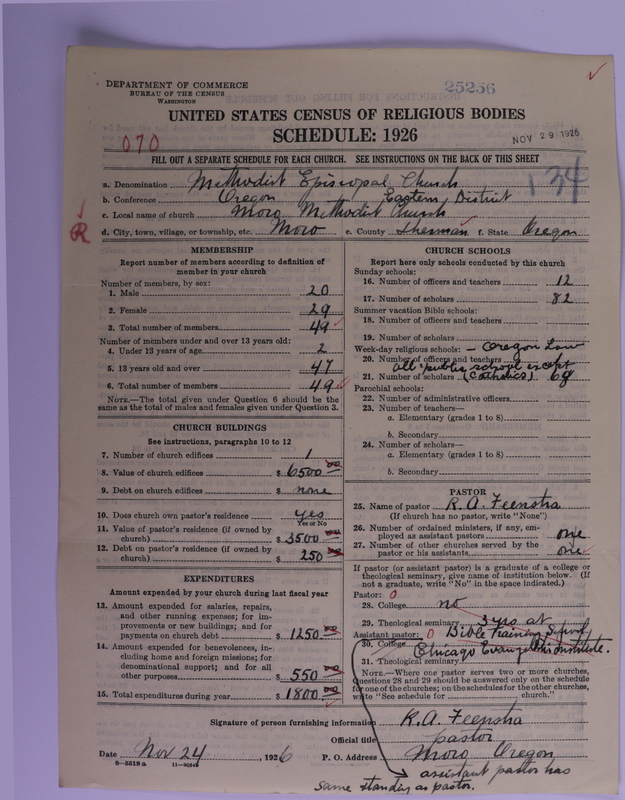 DEPARTMENT OF COMMERCE
BUREAU OF THE CENSUS
WASHINGTON
25256
UNITED STATES CENSUS OF RELIGIOUS BODIES
SCHEDULE: 1926
070
NOV 29 1926
FILL OUT A SEPARATE SCHEDULE FOR EACH CHURCH. SEE INSTRUCTIONS ON THE BACK OF THIS SHEET
134
a. Denomination Methodist Episcopal Church
b. Conference Oregon Eastern District
c. Local name of church Moro Methodist Church
d. City, town, village, or township, etc. Moro e. County Sherman f. State Oregon
R
MEMBERSHIP
Report number of members according to definition of
member in your church
Number of members, by sex:
1. Male 20
2. Female 29
3. Total number of members 49
Number of members under and over 13 years old:
4. Under 13 years of age 2
5. 13 years old and over 47
6. Total number of members 49
NOTE.—The total given under Question 6 should be the
same as the total of males and females given under Question 3.
CHURCH BUILDINGS
See instructions, paragraphs 10 to 12
7. Number of church edifices 1
8. Value of church edifices $ 6500 00
9. Debt on church edifices $ none
10. Does church own pastor's residence? yes
Yes or No
11. Value of pastor's residence (if owned by
church) $ 3500 00
12. Debt on pastor's residence (if owned by
church) $ 250 00
EXPENDITURES
Amount expended by your church during last fiscal year
13. Amount expended for salaries, repairs,
and other running expenses; for im-
provements or new buildings; and for
payments on church debt $ 1250 00
14. Amount expended for benevolences, in-
cluding home and foreign missions; for
denominational support; and for all
other purposes $ 550 00
15. Total expenditures during year $ 1800 00
CHURCH SCHOOLS
Report here only schools conducted by this church
Sunday schools:
16. Number of officers and teachers 12
17. Number of scholars 82
Summer vacation Bible schools:
18. Number of officers and teachers
19. Number of scholars
Week-day religious schools: — Oregon Law
20. Number of officers and teachers
all public school except
21. Number of scholars (Catholics)
Parochial schools:
22. Number of administrative officers
23. Number of teachers—
a. Elementary (grades 1 to 8)
b. Secondary
24. Number of scholars—
a. Elementary (grades 1 to 8)
b. Secondary
PASTOR
25. Name of pastor R. A. Feenstra
(If church has no pastor, write "None")
26. Number of ordained ministers, if any, em-
ployed as assistant pastors one
27. Number of other churches served by the
pastor or his assistants one
If pastor (or assistant pastor) is a graduate of a college or
theological seminary, give name of institution below. (If
not a graduate, write "No" in the space indicated.)
Pastor: 0
28. College no
29. Theological seminary 3 yrs at
Assistant pastor: 0 Bible Training School
30. College Chicago Evangelistic Institute.
31. Theological seminary
NOTE.—Where one pastor serves two or more churches,
Questions 28 and 29 should be answered only on the schedule
for one of the churches; on the schedules for the other churches,
write "See schedule for church."
Signature of person furnishing information R. A. Feenstra
Official title pastor
Date Nov 24, 1926 P. O. Address Moro Oregon
8—5518a 11—9024
assistant pastor has
same standing as pastor.